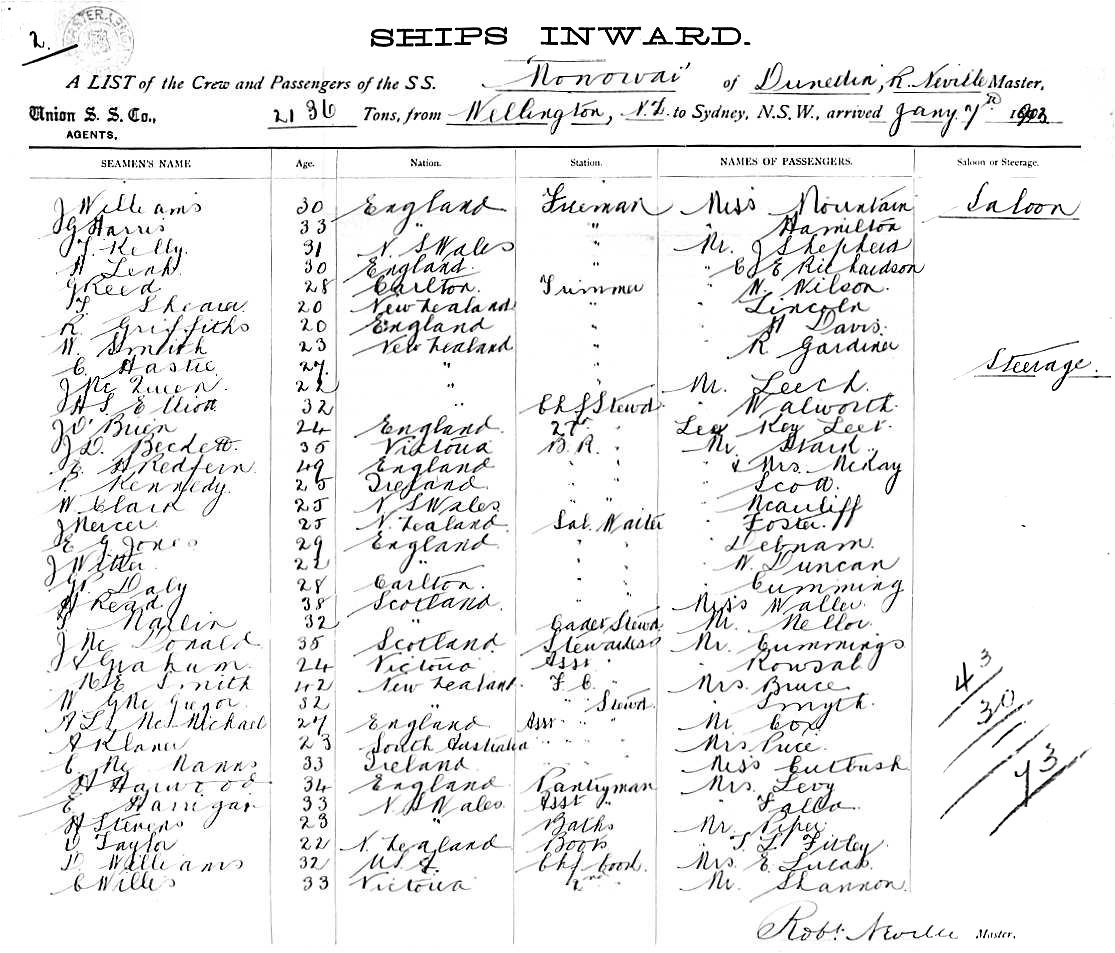 2.
SHIPS INWARD.
A LIST of the Crew and Passengers of the SS. Monowai of Dunedin, R. Neville Master,
Union S. S. Co., AGENTS, 2136 Tons, from Wellington, N.Z. to Sydney, N.S.W., arrived Jany. 7th 1903
SEAMEN'S NAME Age. Nation. Station. NAMES OF PASSENGERS. Saloon or Steerage.
J Williams 30 England Fireman Miss Mountain Saloon
G Harris 33 " " " Hamilton
T. Kelly 31 N S Wales " Mr. J Shepherd
H Leah 30 England " " C E Richardson
G Reed 28 Carlton. Trimmer " W. Wilson.
T. Shearer 20 New Zealand " Lincoln
R. Griffiths 20 England " " H Davis.
W. Smith 23 New Zealand " " R Gardiner
C Hastie 27. " " Steerage.
J Mc Queen. 22 " " Mr. Leech.
H S Elliott 32 " Chf Stewd " Walworth.
J O'Brien 24 England 2nd " Lee Key Leet.
J. D. Beckett. 35 Victoria B.R. " Mr Stark.
E. H Redfern 49 England " " " & Mrs. McKay
P. Kennedy. 25 Ireland " " " Scott.
W Clark 25 N S Wales " " " McAuliff
J Mercer 25 N. Zealand Sal. Waiter " Foster.
E G Jones 29 England " " " Debnam.
J Witter. 22 " " " " W. Duncan
W. Daly 28 Carlton. " " " Cumming
H Read 38 Scotland " " Miss Waller
32 " Stewd Mr. Mellor
J Mc Donald 35 Scotland Stewardess Mr. Cummings
J Graham. 24 Victoria Asst " "
M E Smith 42 New Zealand. F. C. " Mrs. Bruce 43
W G McGregor. 32 " " Stewd " Smyth. 30
A L S McMichael 27 England Asst " " Mr Cox 73
A 23 South Australia " " " Mrs Price.
C Mc Manns 33 Ireland " " " Miss Cutbush
H Harwood 34 England Pantryman Mrs. Levy
E Harrigan 33 N S Wales Asst " "
H Stevens 23 " Baths Mr Piper
D Taylor 22 N. Zealand Boots "
D Williams 32 U.S. Chf Cook. Mrs. E. Lucas
C Willis 33 Victoria 2nd " Mr. Shannon.
Robt. Neville Master.